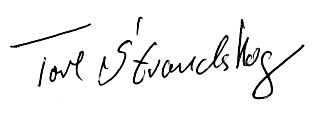 Tore Strandskog